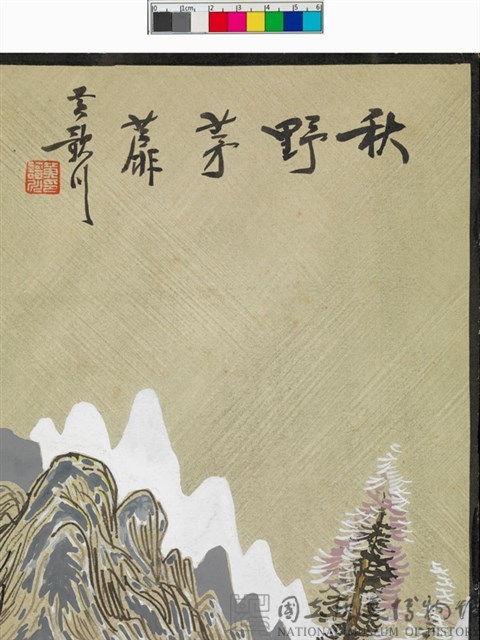 秋野茅舍
黄歌川
國立歷史博物館
NATIONAL MUSEUM OF HISTORY
0 1cm 2 3 4 5 6